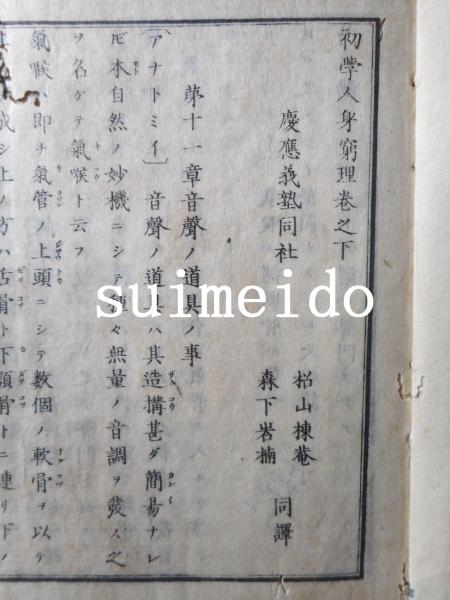 初學人身窮理卷之下
慶應義塾同社
松山棟菴
森下岩楠
同譯
第十一章音聲ノ道具ノ事
〔アナトミイ〕音聲ノ道具ハ其造搆甚ダ簡易ナレ
𪜈本自然ノ妙機ニシテ種々無量ノ音調ヲ發ス之
ヲ名ケテ氣喉ト云フ
氣喉ハ即チ氣管ノ上頭ニシテ数個ノ軟骨ヲ以テ
成シ上ノ方ハ舌骨ト下顎骨トニ連リ下ノ
suimeido